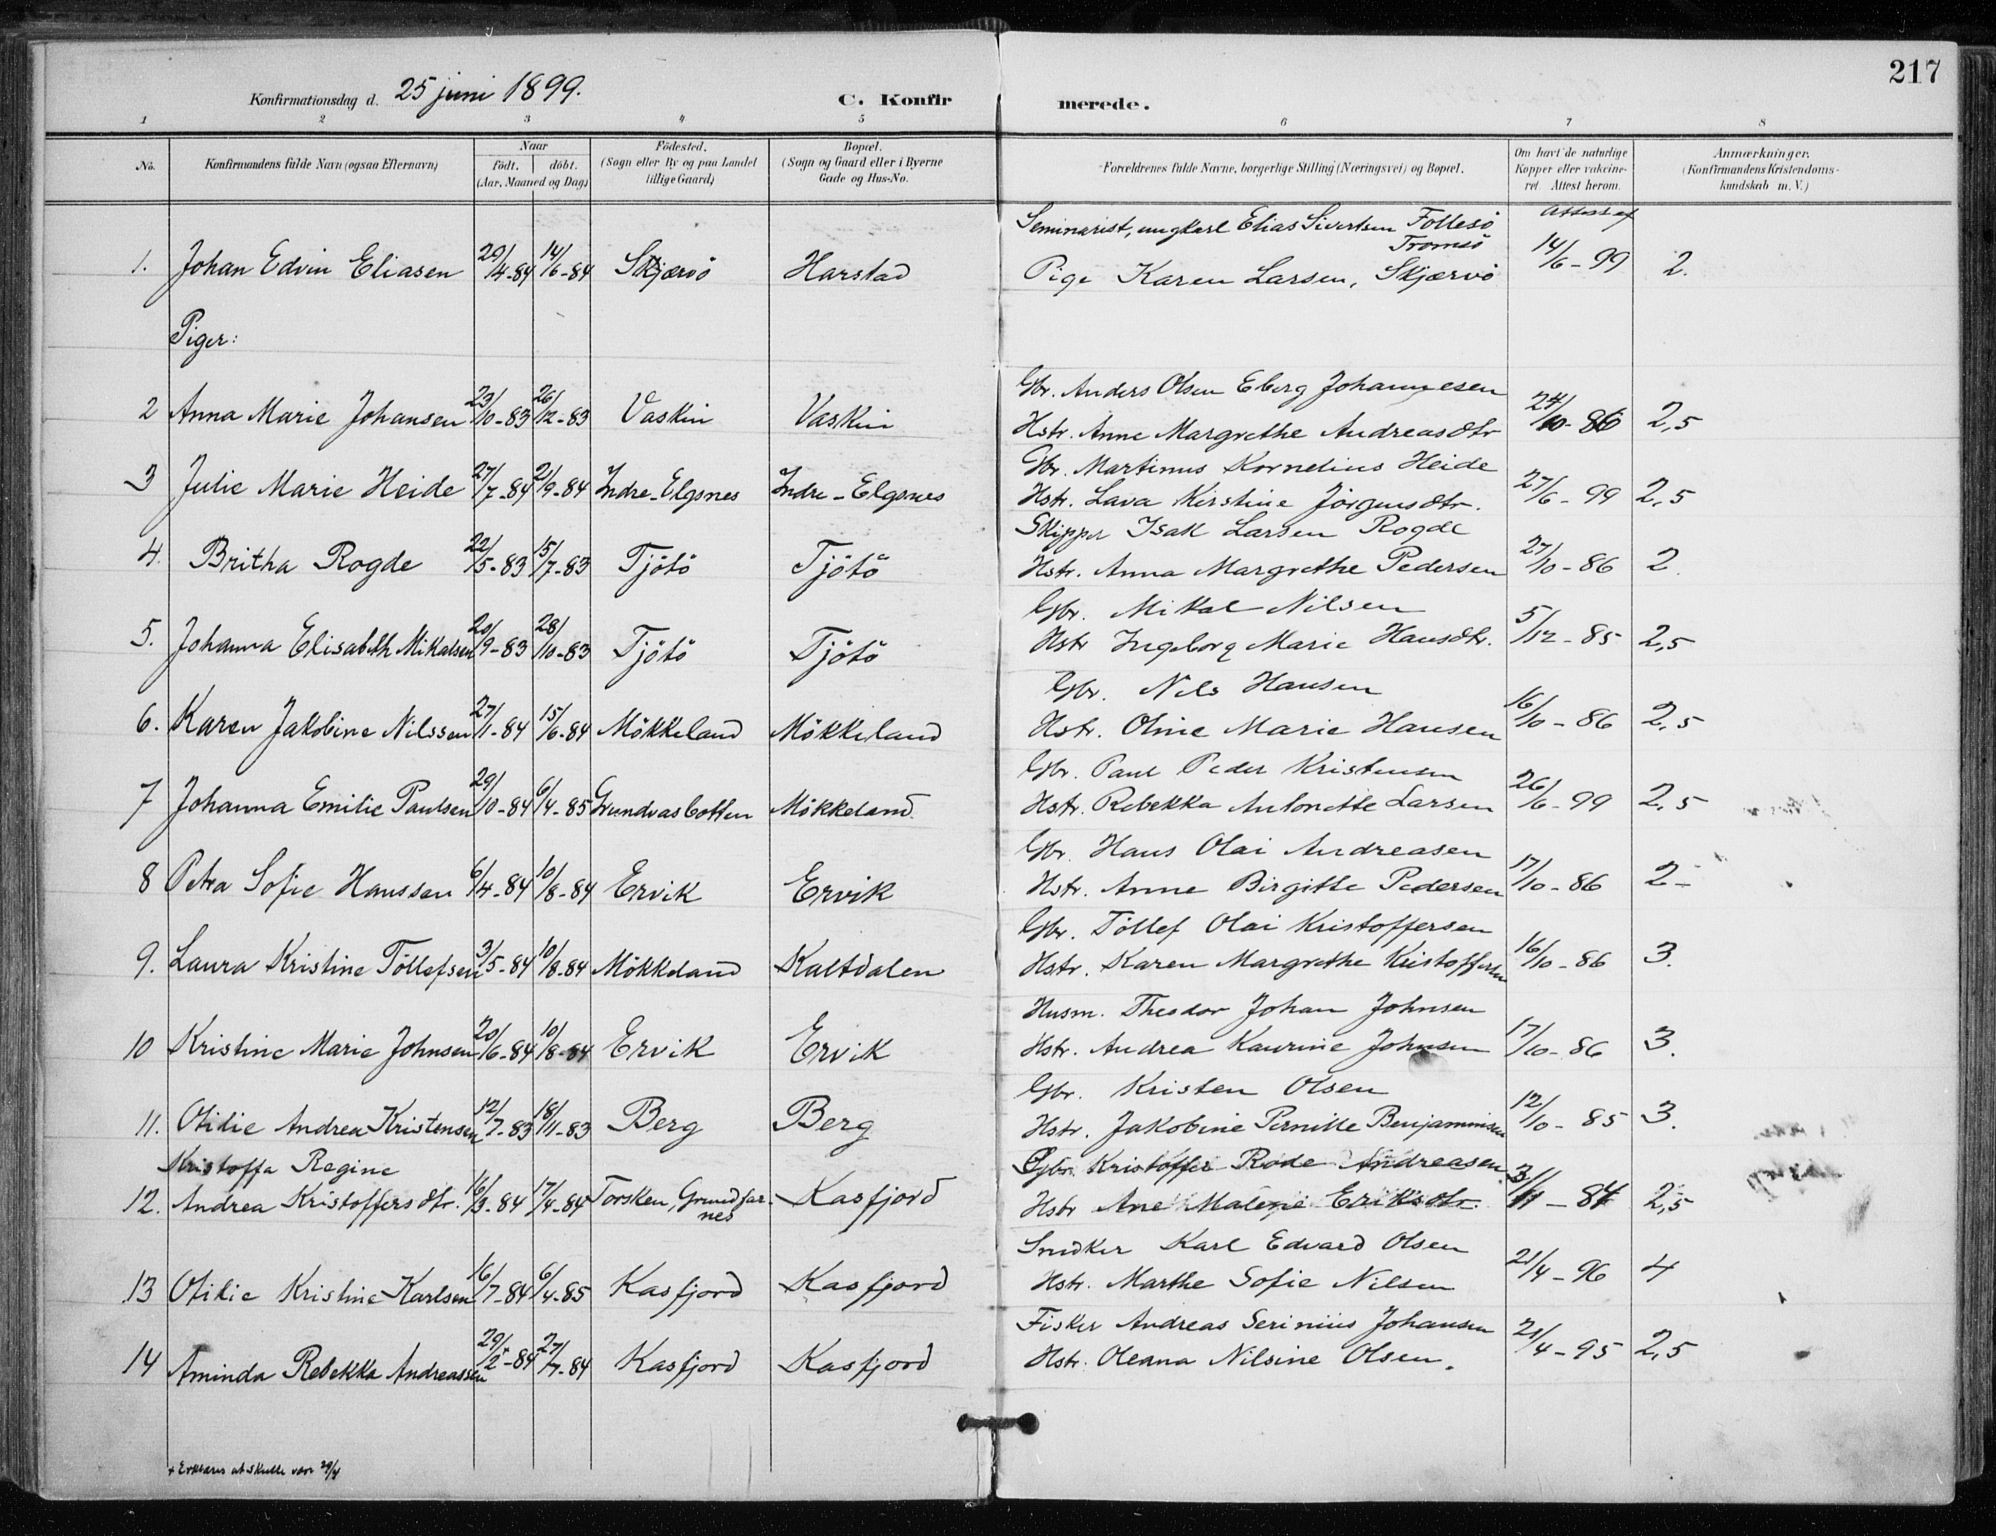 217
Konfirmationsdag d. 25 juni 1899. C. Konfirmerede.
1 2 3 4 5 6 7 8
No. Konfirmandens fulde Navn (ogsaa Efternavn) Naar födt. döbt. (Aar, Maaned og Dag) Födested. (Sogn eller By og paa Landet tillige Gaard) Bopæl. (Sogn og Gaard eller i Byerne Gade og Hus-No. Forældrenes fulde Navne, borgerlige Stilling (Næringsvei) og Bopæl. Om havt de naturlige Kopper eller vakcineret. Attest herom. Anmærkninger. (Konfirmandens Kristendomskundskab m. V.)
Seminarist, ungkarl Elias Sivertsen Follesö Attest af
Tromsö
1. Johan Edvin Eliasen 20/4-84 14/6-84 Skjærvö Harstad Pige Karen Larsen, Skjærvö 14/6-99 2.
Piger:
Gbr. Anders Olsen Eberg Johannesen
2 Anna Marie Johansen 23/10-83 26/12-83 Vaskin Vaskin Hstr. Anne Margrethe Andreasdtr 24/10-86 2,5
Gbr. Martinus Kornelius Heide
3 Julie Marie Heide 27/7-84 21/9-84 Indre-Elgsnes Indre-Elgsnes Hstr. Lava Kirstine Jörgensdtr. 27/6-99 2,5
Skipper Isak Larsen Rogde
4. Britha Rogde 22/5-83 15/7-83 Tjötö Tjötö Hstr. Anna Margrethe Pedersen 27/10-86 2.
Gbr. Mikal Nilsen
5. Johanna Elisabeth Mikalsen 20/9-83 28/10-83 Tjötö Tjötö Hstr Ingeborg Marie Hansdtr. 5/12-85 2,5
Gbr. Nils Hansen
6. Karen Jakobine Nilssen 27/1-84 15/6-84 Mökkeland Mökkeland Hstr. Oline Marie Hansen 16/10-86 2,5
Gbr. Paul Peder Kristensen
7 Johanna Emilie Paulsen 29/10-84 6/4-85 Grundvasbotten Mökkeland Hstr. Rebekka Antonette Larsen 26/6-99 2,5
Gbr. Hans Olai Andreasen
8 Petra Sofie Hanssen 6/4-84 10/8-84 Ervik Ervik Hstr. Anne Birgitte Pedersen 17/10-86 2-
Gbr. Töllef Olai Kristoffersen
9. Laura Kristine Töllefsen 3/5-84 10/8-84 Mökkeland Kaltdalen Hstr. Karen Margrethe Kristoffersen 16/10-86 3.
Husm. Theodor Johan Johnsen
10 Kristine Marie Johnsen 20/6-84 10/8-84 Ervik Ervik Hstr. Andrea Kaurine Johnsen 17/10-86 3.
Gbr. Kristen Olsen
11. Otilie Andrea Kristensen 12/7-83 18/11-83 Berg Berg Hstr. Jakobine Pernille Benjaminsen 12/10-85 3.
Kristoffa Regine Gbr. Kristoffer Rode Andreasen
12. Andrea Kristoffersdtr. 16/3-84 17/4-84 Torsken, Grundfarnes Kasfjord Hstr Ane Malene Eriksdtr. 3/11-84 2,5
Snedker Karl Edvard Olsen
13 Otilie Kristine Karlsen 16/7-84 6/4-85 Kasfjord Kasfjord Hstr. Marthe Sofie Nilsen 21/4-96 4
Fisker Andreas Serinius Johansen
14 Aminda Rebekka Andreassen 29/2+-84 27/7-84 Kasfjord Kasfjord Hstr. Oleana Nilsine Olsen. 21/4-95 2,5
+ Erklæres at skulle være 29/4